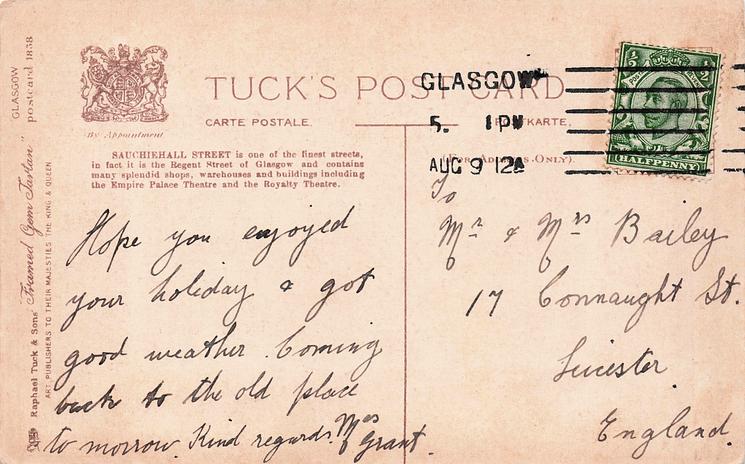 GLASGOW
postcard 1838
Raphael Tuck & Sons' "Framed Gem Tartan"
ART PUBLISHERS TO THEIR MAJESTIES THE KING & QUEEN
By Appointment
TUCK'S POST CARD
CARTE POSTALE.
POSTKARTE.
(FOR ADDRESS ONLY).
SAUCHIEHALL STREET is one of the finest streets,
in fact it is the Regent Street of Glasgow and contains
many splendid shops, warehouses and buildings including
the Empire Palace Theatre and the Royalty Theatre.
GLASGOW
5. 1PM
AUG 9 12A
HALFPENNY
Hope you enjoyed
your holiday & got
good weather. Coming
back to the old place
to morrow. Kind regards. Mrs Grant.
To
Mr & Mrs Bailey
17 Connaught St.
Leicester.
England.